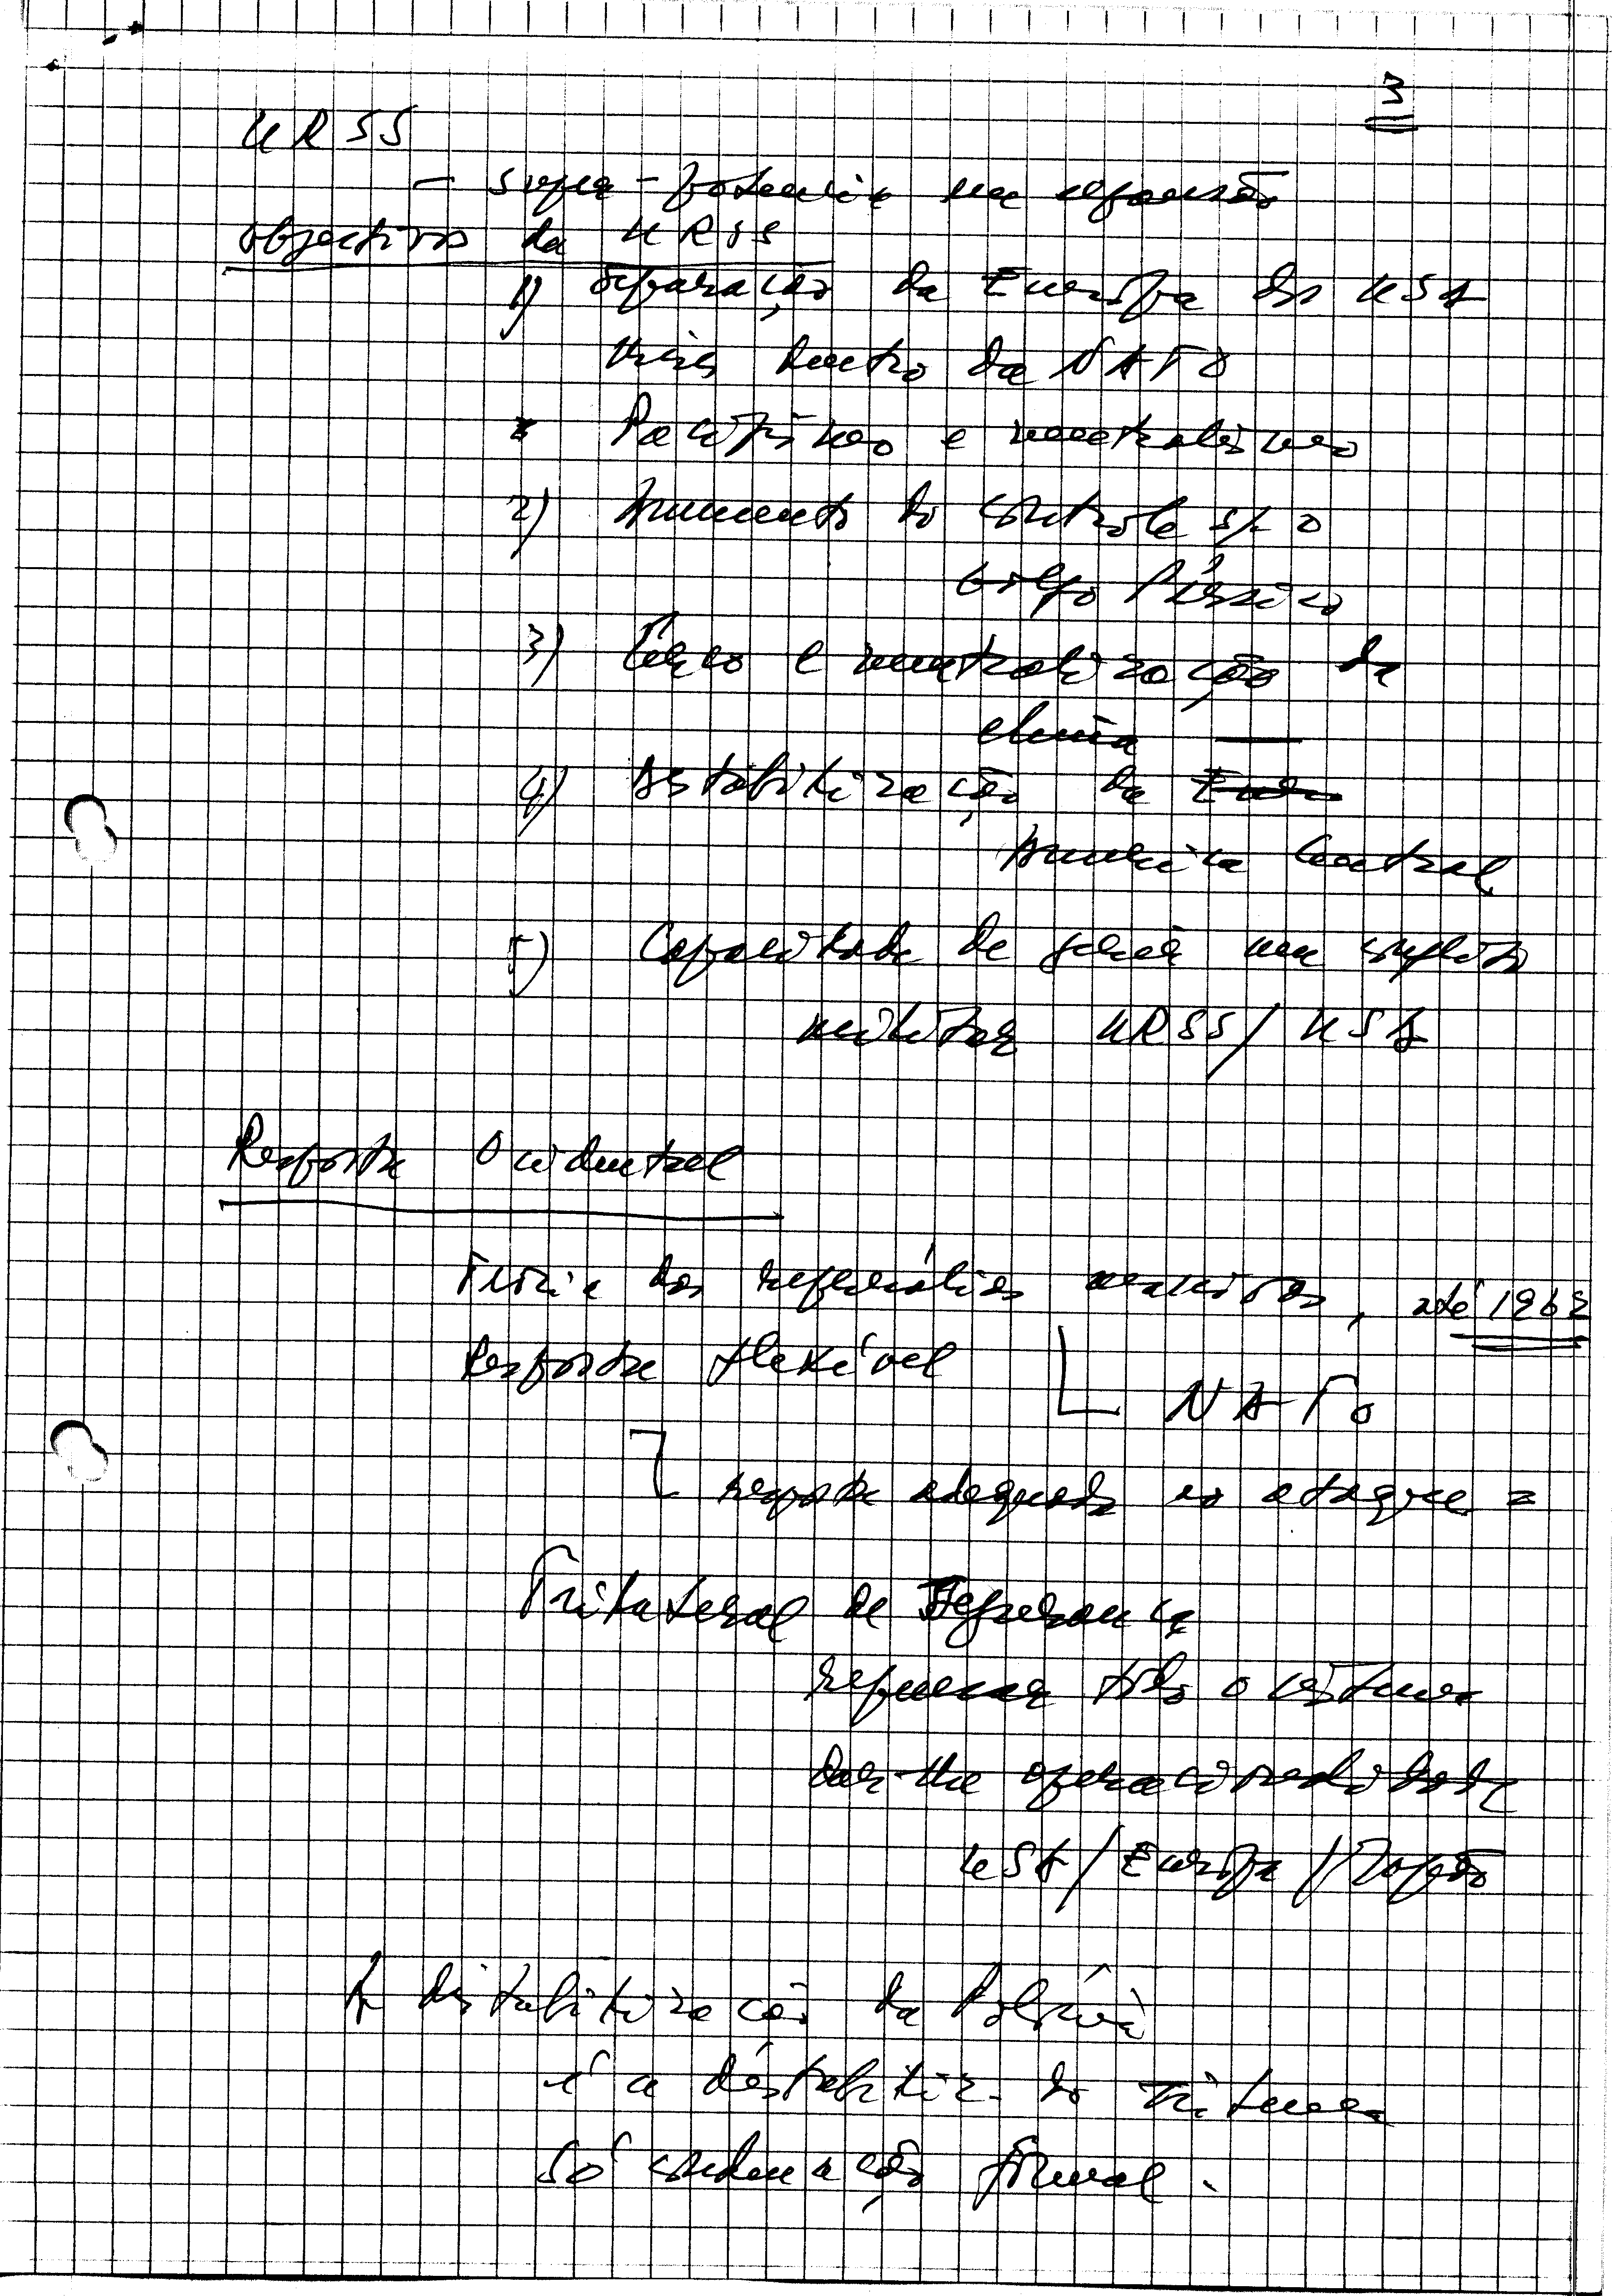 3
URSS
- super-potencia em expansão
objectivos da URSS
1) separação da Europa dos USA
crises dentro da NATO
Pacifismo e neutralismo
2) Aumento do controle s/ o
Golfo Pérsico
3) Cerco e neutralização da
China
4) destabilização da
America Central
5) Capacidade de gerir um conflito
militar URSS/USA
Resposta Ocidental
Teoria das represálias massivas, até 1962
Resposta flexível
NATO
resposta adequada ao ataque =
Trilateral de Segurança
repensar todo o sistema
dar-lhe operacionalidade
USA/Europa/Japão
A destabilização da Polónia
é a destabiliz. do sistema
Só condenação formal.